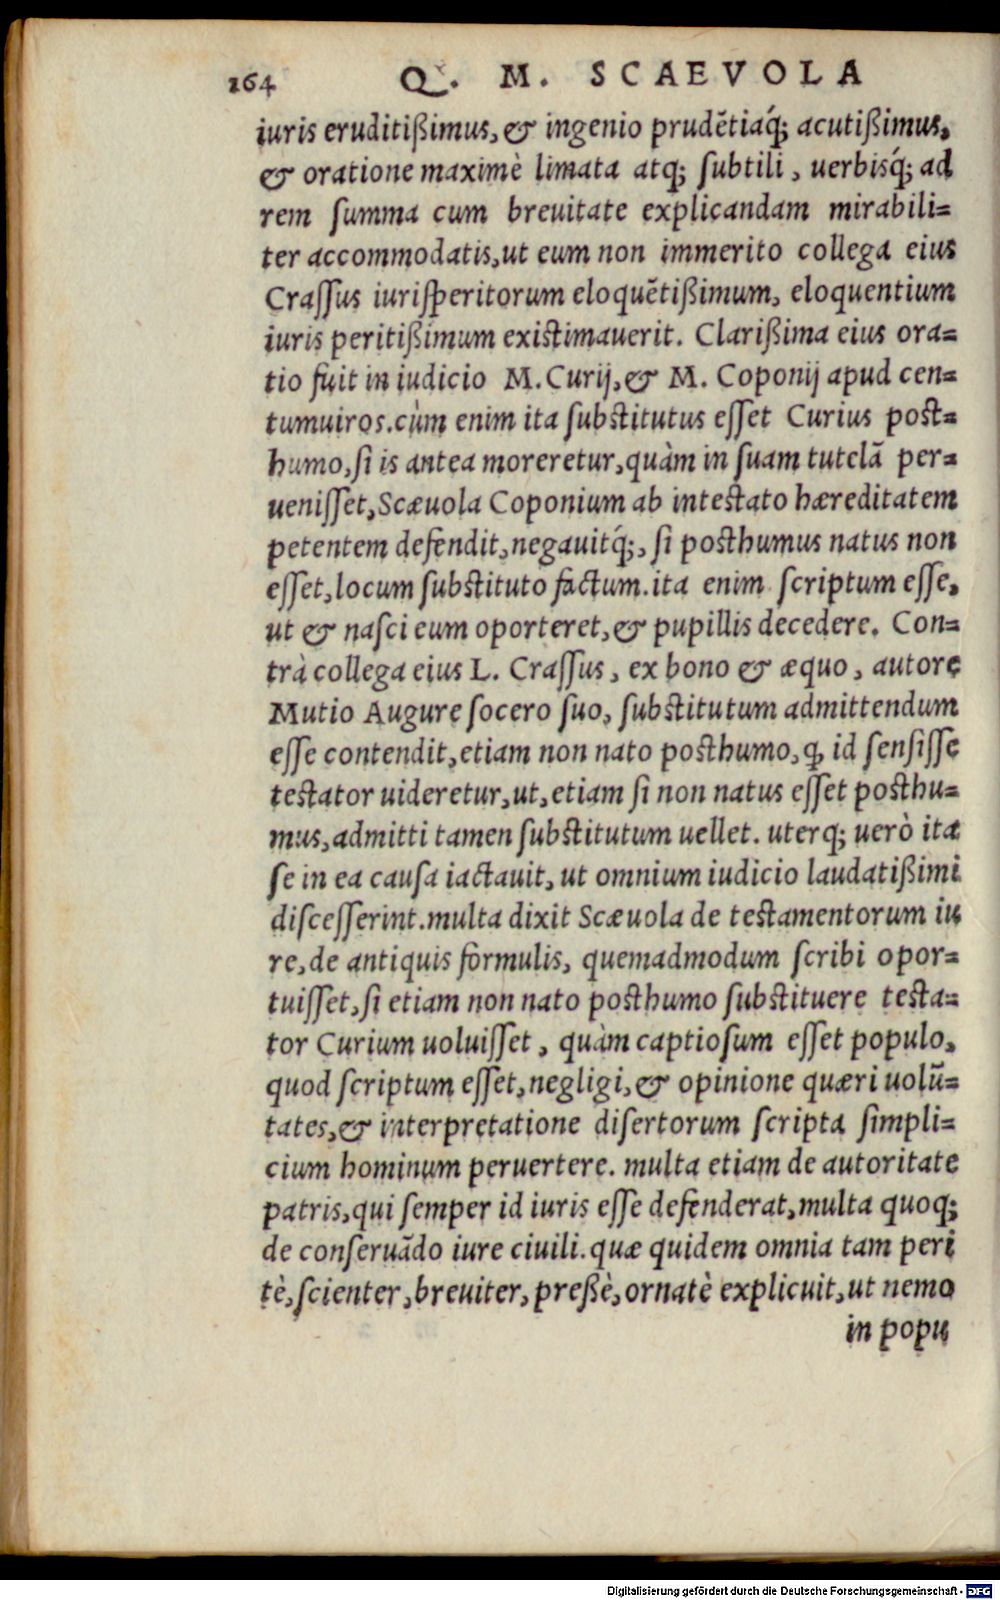 164 Q. M. SCAEVOLA
iuris eruditißimus, & ingenio prudẽtiaq́; acutißimus,
& oratione maximè limata atq; subtili, uerbisq́; ad
rem summa cum breuitate explicandam mirabili=
ter accommodatis, ut eum non immerito collega eius
Crassus iurisperitorum eloquẽtißimum, eloquentium
iuris peritißimum existimauerit. Clarißima eius ora=
tio fuit in iudicio M. Curij, & M. Coponij apud cen=
tumuiros. cùm enim ita substitutus esset Curius post=
humo, si is antea moreretur, quàm in suam tutelã per=
uenisset, Scæuola Coponium ab intestato hæreditatem
petentem defendit, negauitq́;, si posthumus natus non
esset, locum substituto factum. ita enim scriptum esse,
ut & nasci eum oporteret, & pupillis decedere. Con=
trà collega eius L. Crassus, ex bono & æquo, autore
Mutio Augure socero suo, substitutum admittendum
esse contendit, etiam non nato posthumo, ꝙ id sensisse
testator uideretur, ut, etiam si non natus esset posthu=
mus, admitti tamen substitutum uellet. uterq; uerò ita
se in ea causa iactauit, ut omnium iudicio laudatißimi
discesserint. multa dixit Scæuola de testamentorum iu
re, de antiquis formulis, quemadmodum scribi opor=
tuisset, si etiam non nato posthumo substituere testa=
tor Curium uoluisset, quàm captiosum esset populo,
quod scriptum esset, negligi, & opinione quæri uolũ=
tates, & interpretatione disertorum scripta simpli=
cium hominum peruertere. multa etiam de autoritate
patris, qui semper id iuris esse defenderat, multa quoq;
de conseruãdo iure ciuili. quæ quidem omnia tam peri
tè, scienter, breuiter, preßè, ornatè explicuit, ut nemo
in popu
Digitalisierung gefördert durch die Deutsche Forschungsgemeinschaft - DFG